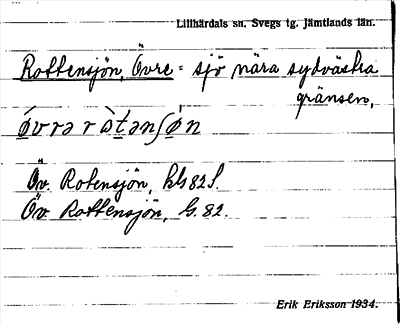 Lillhärdals sn. Svegs tg. Jämtlands län.
Rottensjön, Övre = sjö nära sydvästra
gränsen,
Öv. Rotensjön,
Öv. Rottensjön, G. 82.
Erik Eriksson 1934.